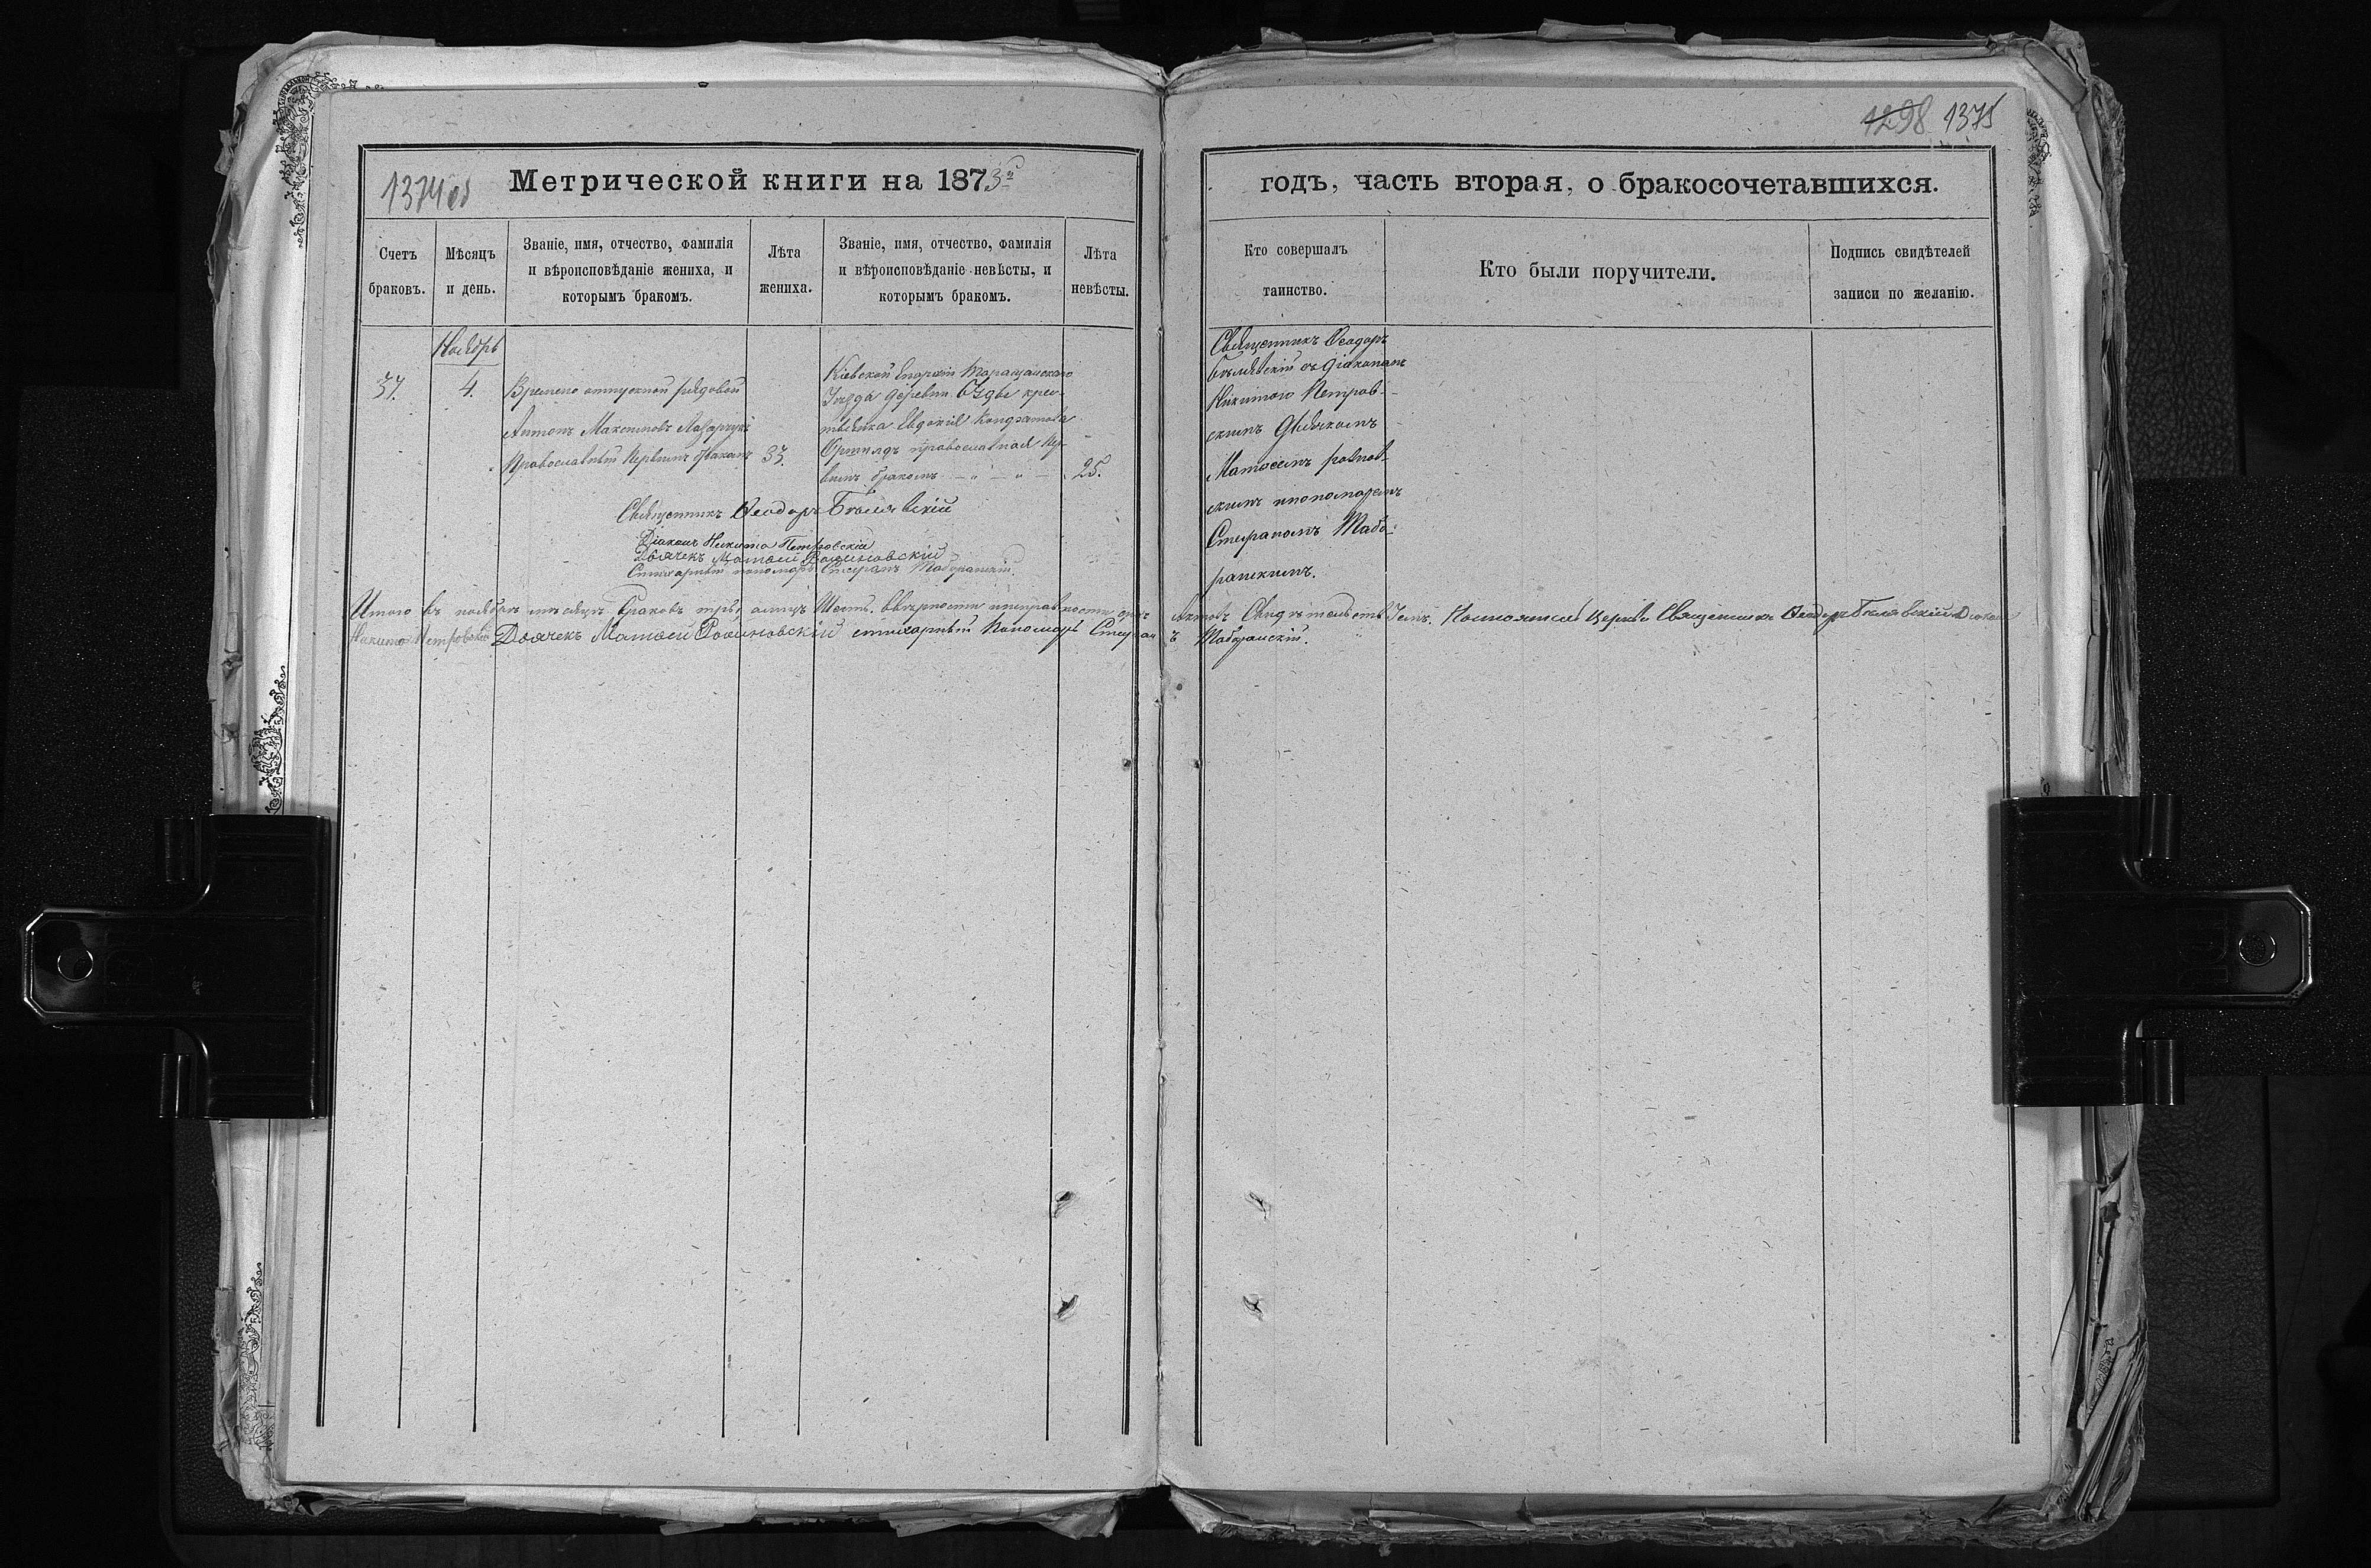 1298 1375
1374 об
Метрической книги на 1873й
годъ, часть вторая, о бракосочетавшихся.
Счетъ браковъ.
Мѣсяцъ и день.
Званіе, имя, отчество, фамилія
и вѣроисповѣданіе жениха, и
которымъ бракомъ.
Лѣта
жениха.
Званіе, имя, отчество, фамилія
и вѣроисповѣданіе невѣсты, и
которымъ бракомъ.
Лѣта
невѣсты.
Кто совершалъ
таинство.
Кто были поручители.
Подпись свидѣтелей
записи по желанію.
Ноябрь
37.
4.
Времено отпускной рядовой
Антонъ Максимовъ Лазарчукъ
Православный Первымъ бракомъ
37.
Кіевской Епархіи Таращанскаго
Уѣзда деревни крес-
тьянка Евдокія Кондратова
православная пер-
вымъ бракомъ
25.
Священникъ Ѳеодоръ
Бѣлявскій съ діякономъ
Никитою Петров-
скимъ Дьячкомъ
Матѳеемъ
скимъ пономаремъ
Стефаномъ Табо-
ранскимъ.
Священникъ Ѳеодоръ Бѣлявскій
Діаконъ Никита Петровскій
Дьячекъ Матѳей
Стихарный пономарь Стефанъ Таборанскій.
Итого въ ноябрѣ мѣсяцѣ браковъ три, а лицъ Шесть. ввѣрности иисправности сихъ Актовъ Свидѣтельствуемъ. Церкви Священникъ Ѳеодоръ Бѣлявскій Діаконъ
Никита Петровскій Дьячекъ Матѳей стихарный Пономарь Стефанъ Таборанскій.